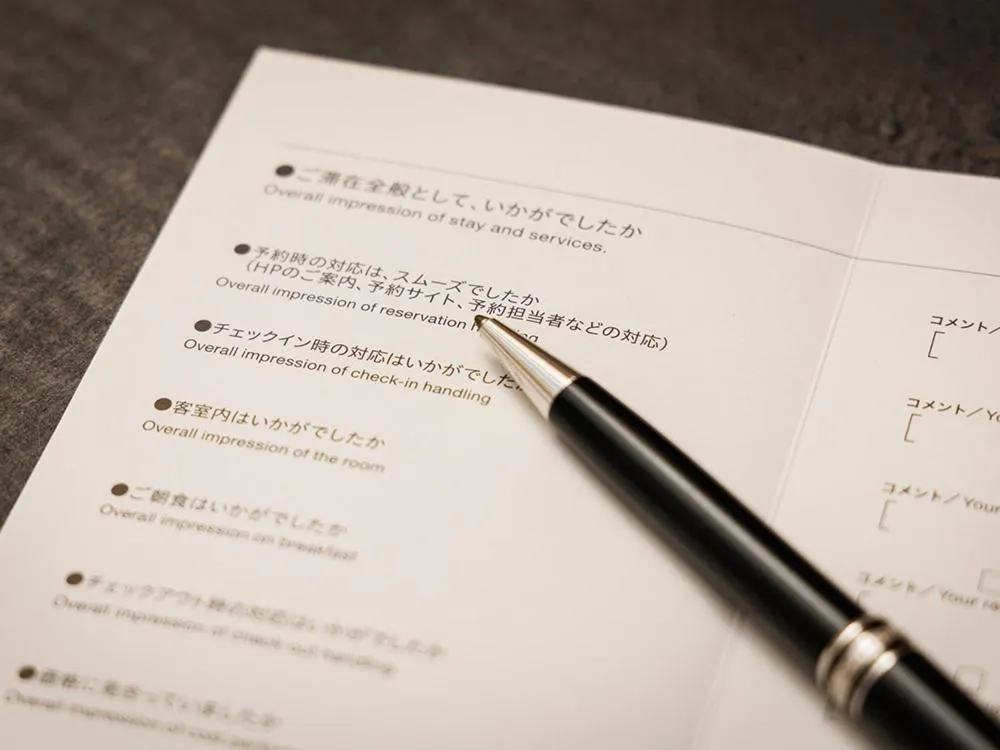 ●ご滞在全般として、いかがでしたか
Overall impression of stay and services.
●予約時の対応は、スムーズでしたか
（HPのご案内、予約サイト、予約担当者などの対応）
Overall impression of reservation
●チェックイン時の対応はいかがでした
Overall impression of check-in handling
●客室内はいかがでしたか
Overall impression of the room
●ご朝食はいかがでしたか
Overall impression on breakfast
●チェックアウト時の対応はいかがでしたか
Overall impression of check-out handling
●価格に見合っていましたか
Overall impression of
コメント／
[
コメント／Yo
[
コメント／Your
[
コメント／Your re
[